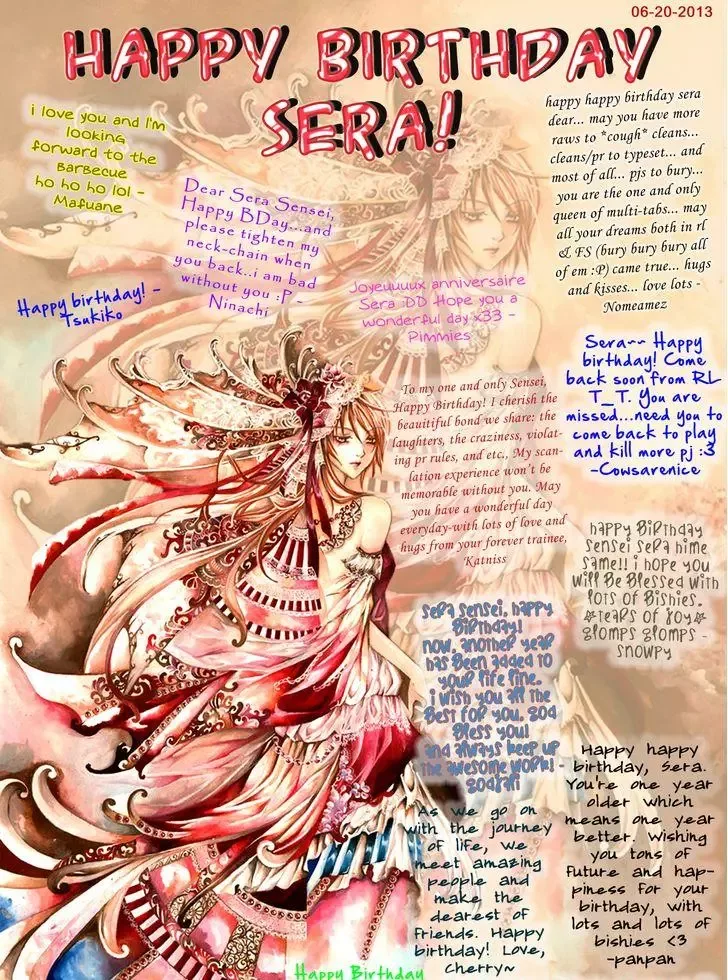 06-20-2013
HAPPY BIRTHDAY
SERA!
i love you and I'm
looking
forward to the
barbecue
ho ho ho lol -
Mafuane
Dear Sera Sensei,
Happy BDay...and
please tighten my
neck-chain when
you back..i am bad
without you :P -
Ninachi
happy happy birthday sera
dear... may you have more
raws to *cough* cleans...
cleans/pr to typeset... and
most of all... pjs to bury...
you are the one and only
queen of multi-tabs... may
all your dreams both in rl
& FS (bury bury bury all
of em :P) came true... hugs
and kisses... love lots -
Nomeamez
Happy birthday! -
Tsukiko
Joyeuuuux anniversaire
Sera :DD Hope you a
wonderful day x33 -
Pimmies
Sera~~ Happy
birthday! Come
back soon from RL
T_T. You are
missed...need you to
come back to play
and kill more pj :3
-Cowsarenice
To my one and only Sensei,
Happy Birthday! I cherish the
beauitiful bond we share: the
laughters, the craziness, violat-
ing pr rules, and etc., My scan-
lation experience won't be
memorable without you. May
you have a wonderful day
everyday-with lots of love and
hugs from your forever trainee,
Katniss
happy Birthday
sensei sera hime
same!! i hope you
will be blessed with
lots of Bishies.
*tears of joy*
glomps glomps -
snowpy
sera sensei, happy
Birthday!
now, another year
has been added to
your life line.
i wish you all the
best for you. god
Bless you!
and always keep up
the awesome work! -
godsfafi
Happy happy
birthday, Sera.
You're one year
older which
means one year
better. Wishing
you tons of
future and hap-
piness for your
birthday, with
lots and lots of
bishies <3
-panpan
As we go on
with the journey
of life, we
meet amazing
people and
make the
dearest of
friends. Happy
birthday! Love,
Cherry~
Happy Birthday